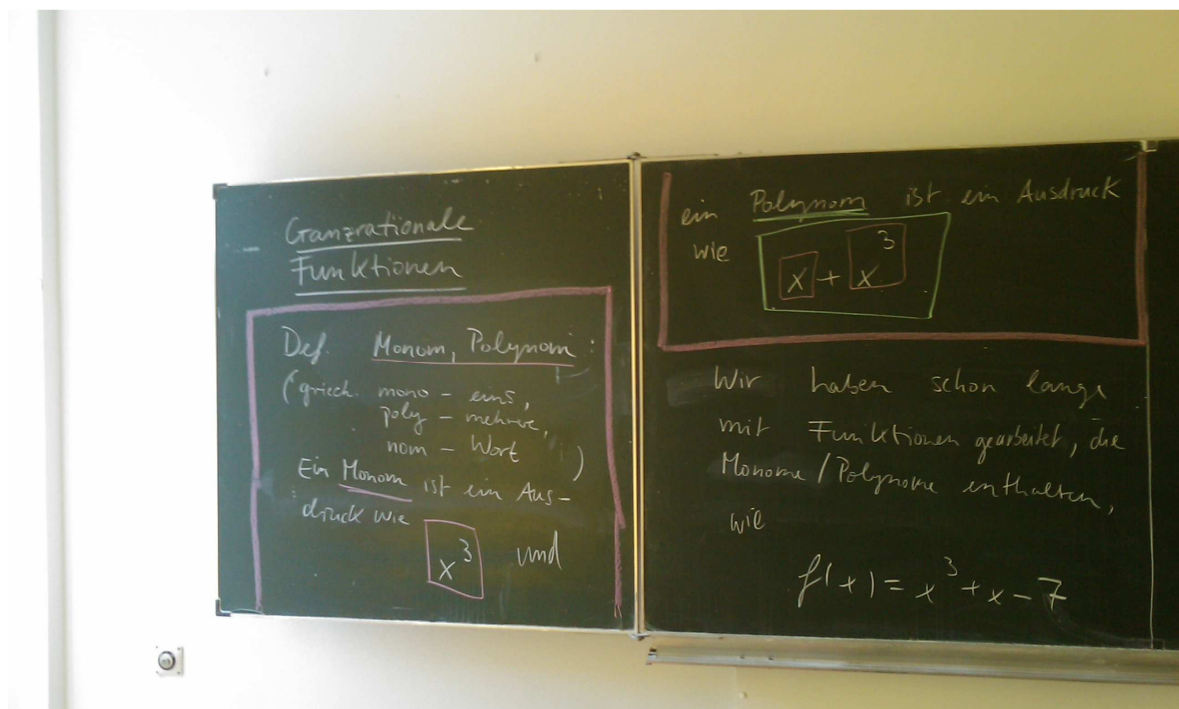 Ganzrationale
Funktionen
Def. Monom, Polynom:
(griech. mono - eins,
poly - mehrere,
nom - Wort )
Ein Monom ist ein Aus-
druck wie
x³ und
ein Polynom ist ein Ausdruck
wie x + x³
Wir haben schon lange
mit Funktionen gearbeitet, die
Monome/Polynome enthalten,
wie
f(x) = x³ + x - 7